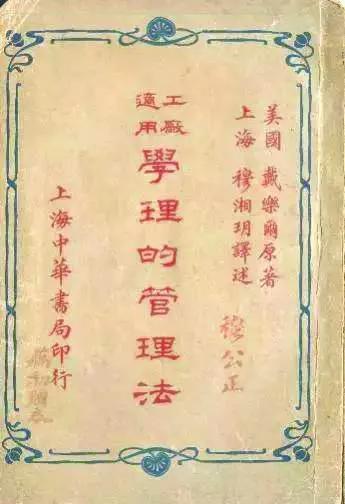 美國 戴樂爾原著
上海 穆湘玥譯述
穆公正
工廠適用
學理的管理法
上海中華書局印行